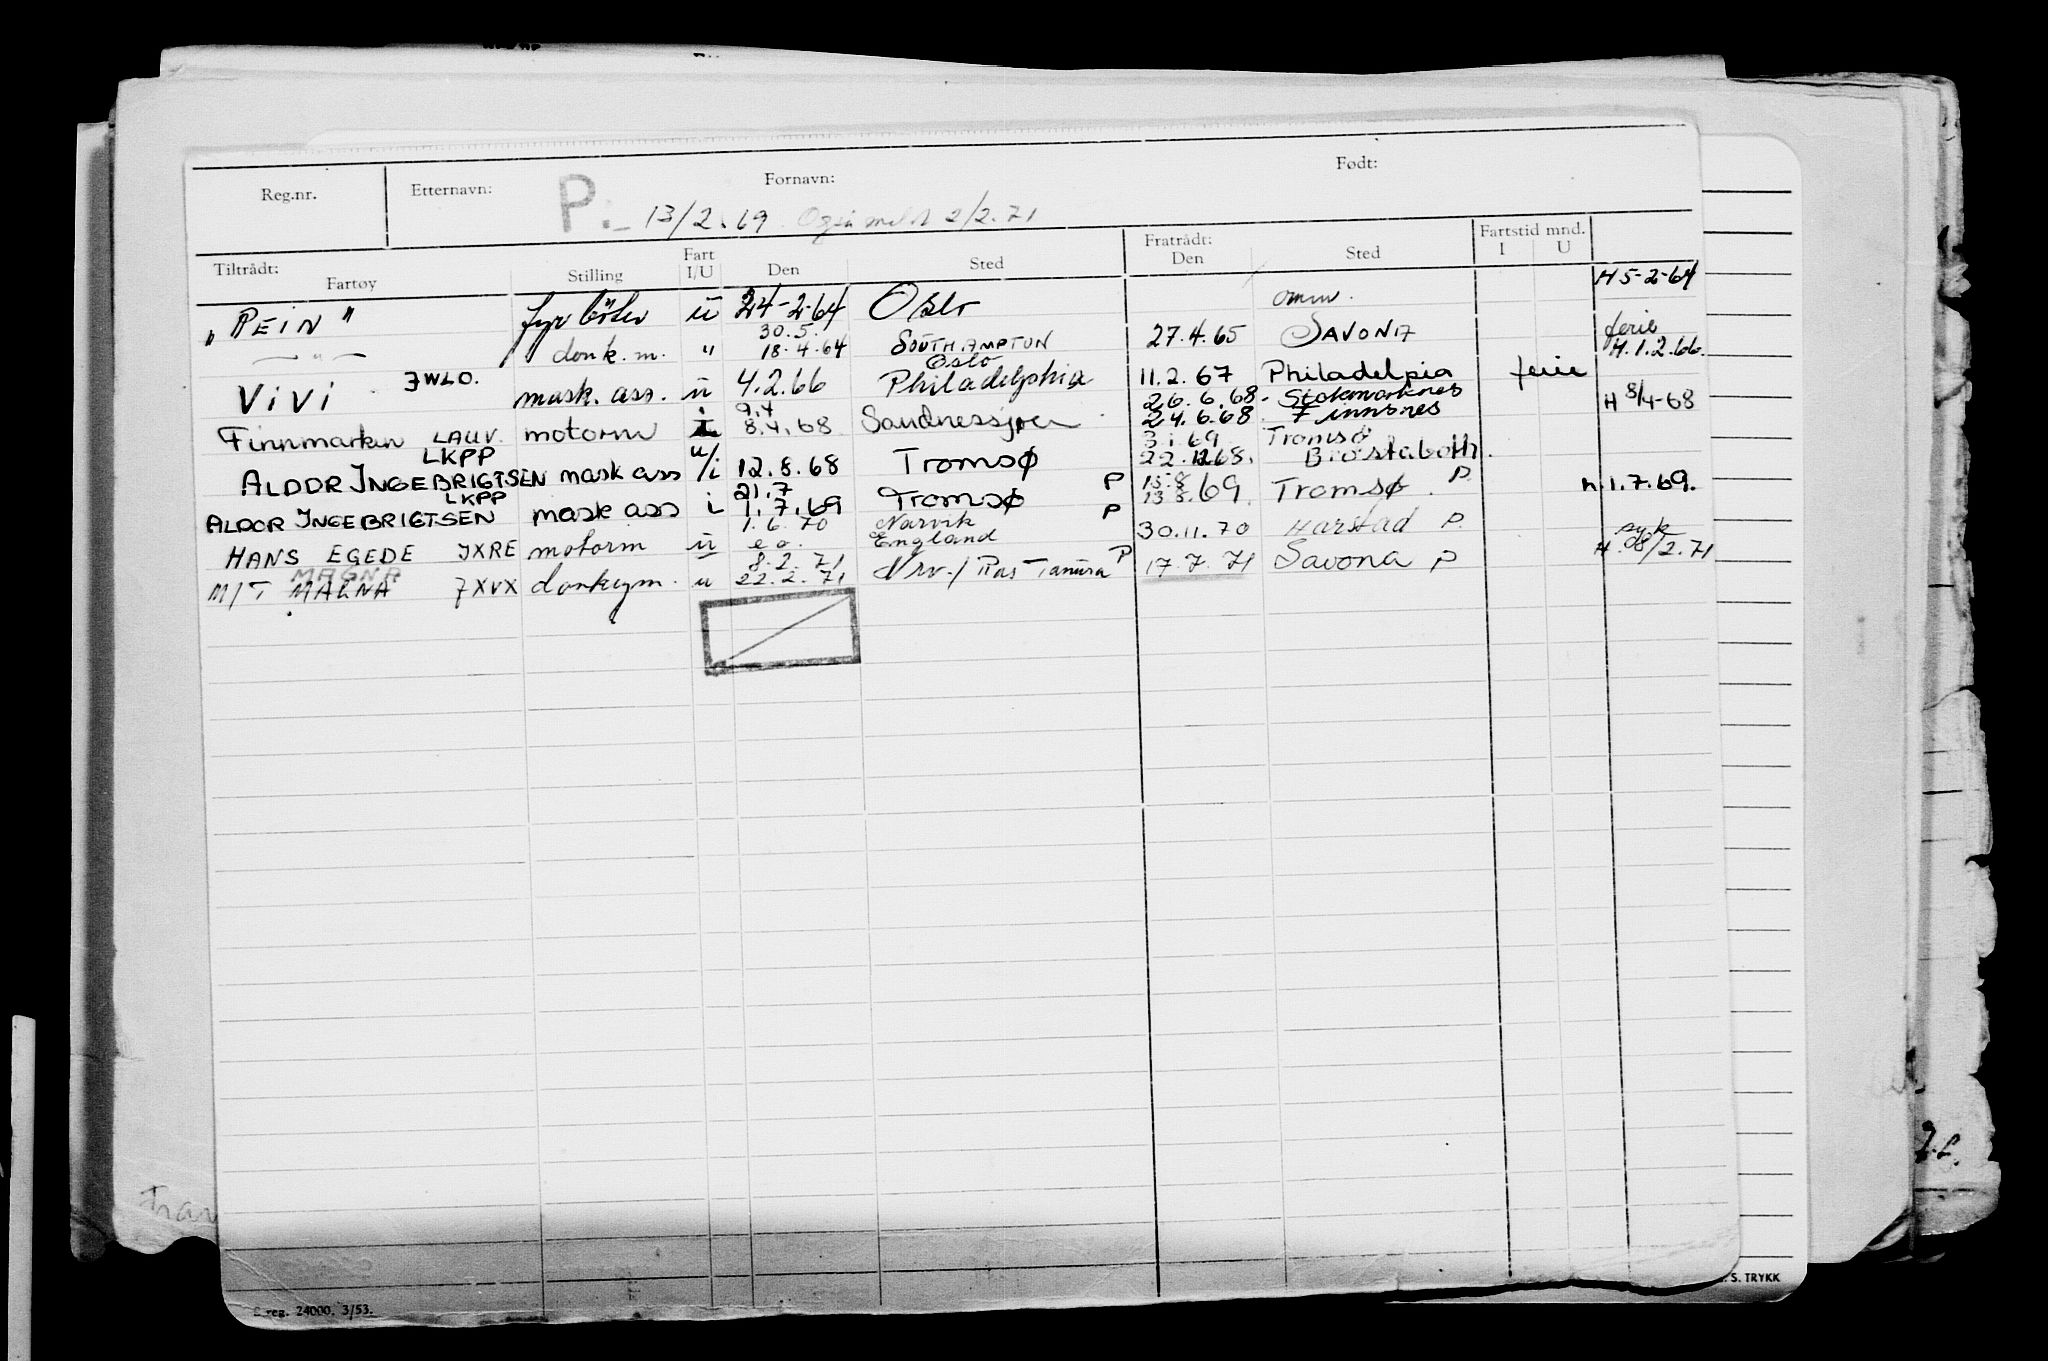 Reg.nr. Etternavn: Fornavn: Født:
P. 13/2.69 Også meldt 2/2.71
Tiltrådt: Fartøy Stilling Fart I/U Den Sted Fratrådt: Den Sted Fartstid mnd. I U
H 5-2-64
"REIN" fyrbøter u 24-2-64 Oslo omm.
30.5. ferie
— " — donk.m. " 18.4.64 SOUTHAMPTON 27.4.65 SAVONA H.1.2.66.
Oslo
ViVi JWLO. mask.ass. u 4.2.66 Philadelphia 11.2.67 Philadelpia ferie
9.4 26.6.68. Stokmarknes
Finnmarken LAUV. motorm i 8.4.68 Sandnessjøen 24.6.68. Finnsnes H 8/4-68
LKPP 3.1.69 Tromsø
ALDOR INGEBRIGTSEN mask ass u/i 12.8.68 Tromsø 22.12.68. Brøstaboth.
LKPP 21.7 P 15.8 P.
ALDOR INGEBRIGTSEN mask ass i 1.7.69 Tromsø 13.8.69. Tromsø. h.1.7.69.
1.6.70 Narvik P
HANS EGEDE JXRE motorm u e.o. England 30.11.70 Harstad P.
MAGNA 8.2.71 syk
M/T MAGNA JXVX donkeym. u 22.2.71 Nrv./Ras Tanura P 17.7.71 Savona P H. 08/2.71
reg. 24000. 3/53.
S. TRYKK